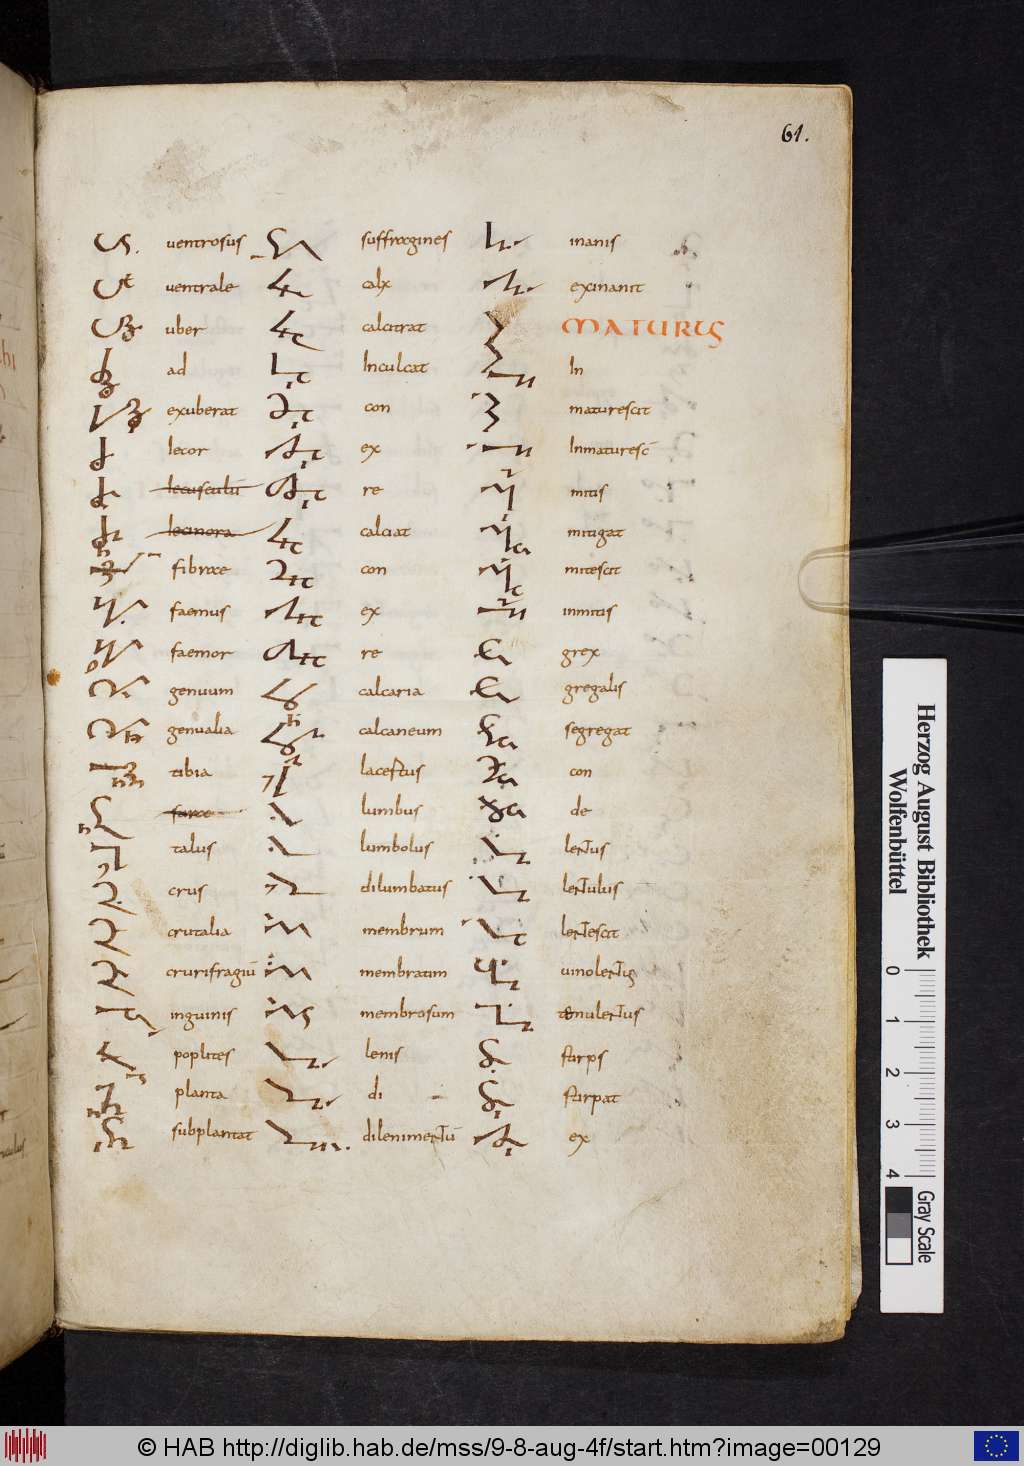 61.
ventrosus
ventrale
uber
ad
exuberat
Iecor
Iecusculū
Iecinora
fibrae
faemus
faemor
genuum
genualia
tibia
surae
talus
crus
crutalia
crurifragiū
inguinis
poplites
planta
subplantat
suffragines
calx
calcitrat
Inculcat
con
ex
re
calciat
con
ex
re
calcaria
calcaneum
lacertus
lumbus
lumbolus
dilumbatus
membrum
membratim
membrosum
lenis
di
dilenimentū
inanis
exinanit
MATURUS
In
maturescit
Inmaturesc̄
mitis
mitigat
mitescit
inmitis
grex
gregalis
segregat
con
de
lentus
lentulus
lentescit
vinolentus
temulentus
stirps
stirpat
ex
Herzog August Bibliothek
Wolfenbüttel
0 1 2 3 4
Gray Scale
© HAB http://diglib.hab.de/mss/9-8-aug-4f/start.htm?image=00129